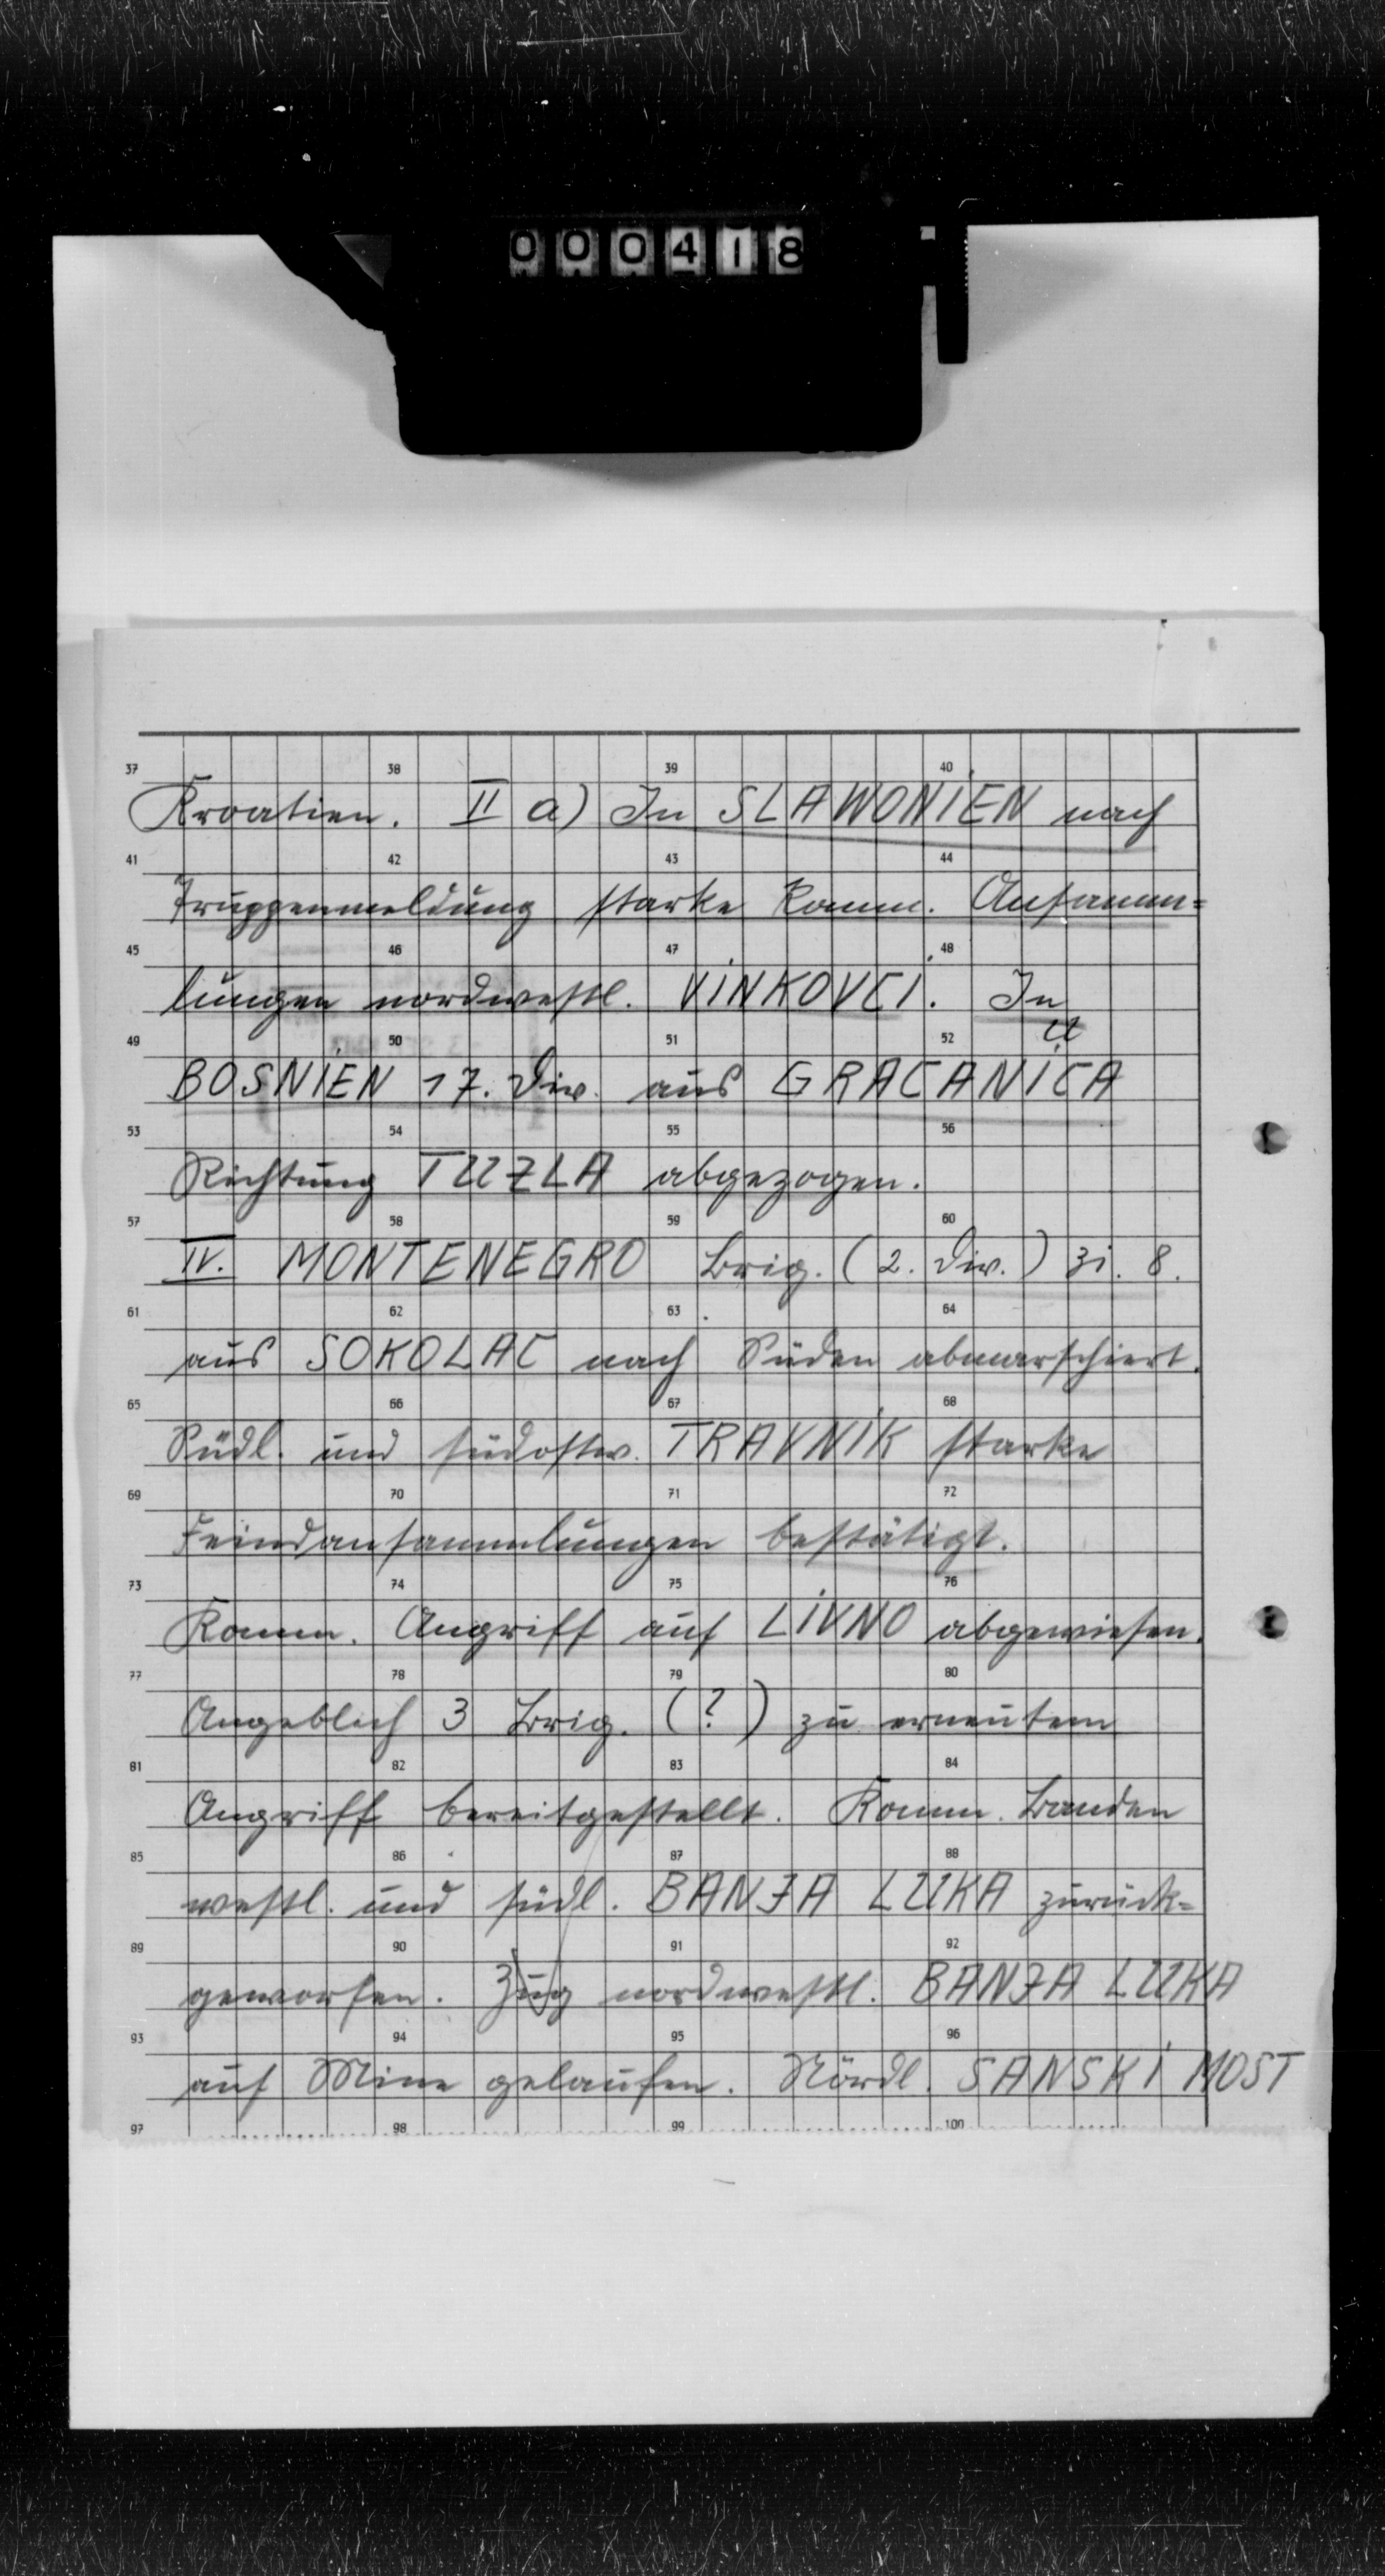 000418
37 38 39 40
Kroatien. II a) In SLAWONIEN nach
41 42 43 44
Truppenmeldung starke komm. Ansamm=
45 46 47 48
lungen nordwestl. VINKOVCI. In
49 50 51 52
BOSNIEN 17. Div. aus GRACANICA
53 54 55 56
Richtung TUZLA abgezogen.
57 58 59 60
IV. MONTENEGRO Brig. (2. Div.) 31. 8.
61 62 63 64
aus SOKOLAC nach Süden abmarschiert.
65 66 67 68
Südl. und südostw. TRAVNIK starke
69 70 71 72
Feindansammlungen bestätigt.
73 74 75 76
Komm. Angriff auf LIVNO abgewiesen.
77 78 79 80
Angeblich 3 Brig. (?) zu erneutem
81 82 83 84
Angriff bereitgestellt. Komm. Banden
85 86 87 88
westl. und südl. BANJA LUKA zurück=
89 90 91 92
geworfen. Zug nordwestl. BANJA LUKA
93 94 95 96
auf Mine gelaufen. Nördl. SANSKI MOST
97 98 99 100